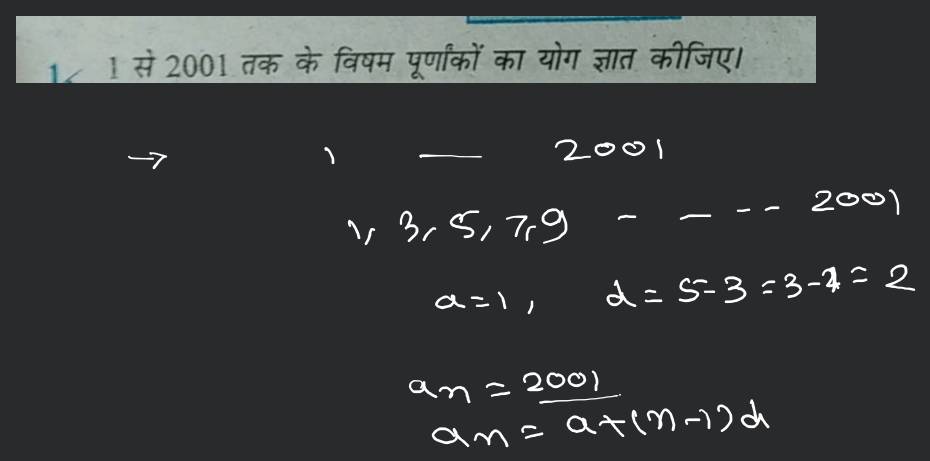 1 से 2001 तक के विषम पूर्णांकों का योग ज्ञात कीजिए।
→ 1 — 2001
1, 3, 5, 7, 9 - - - - 2001
a = 1, d = 5-3 = 3-1 = 2
an = 2001
an = a+(n-1)d